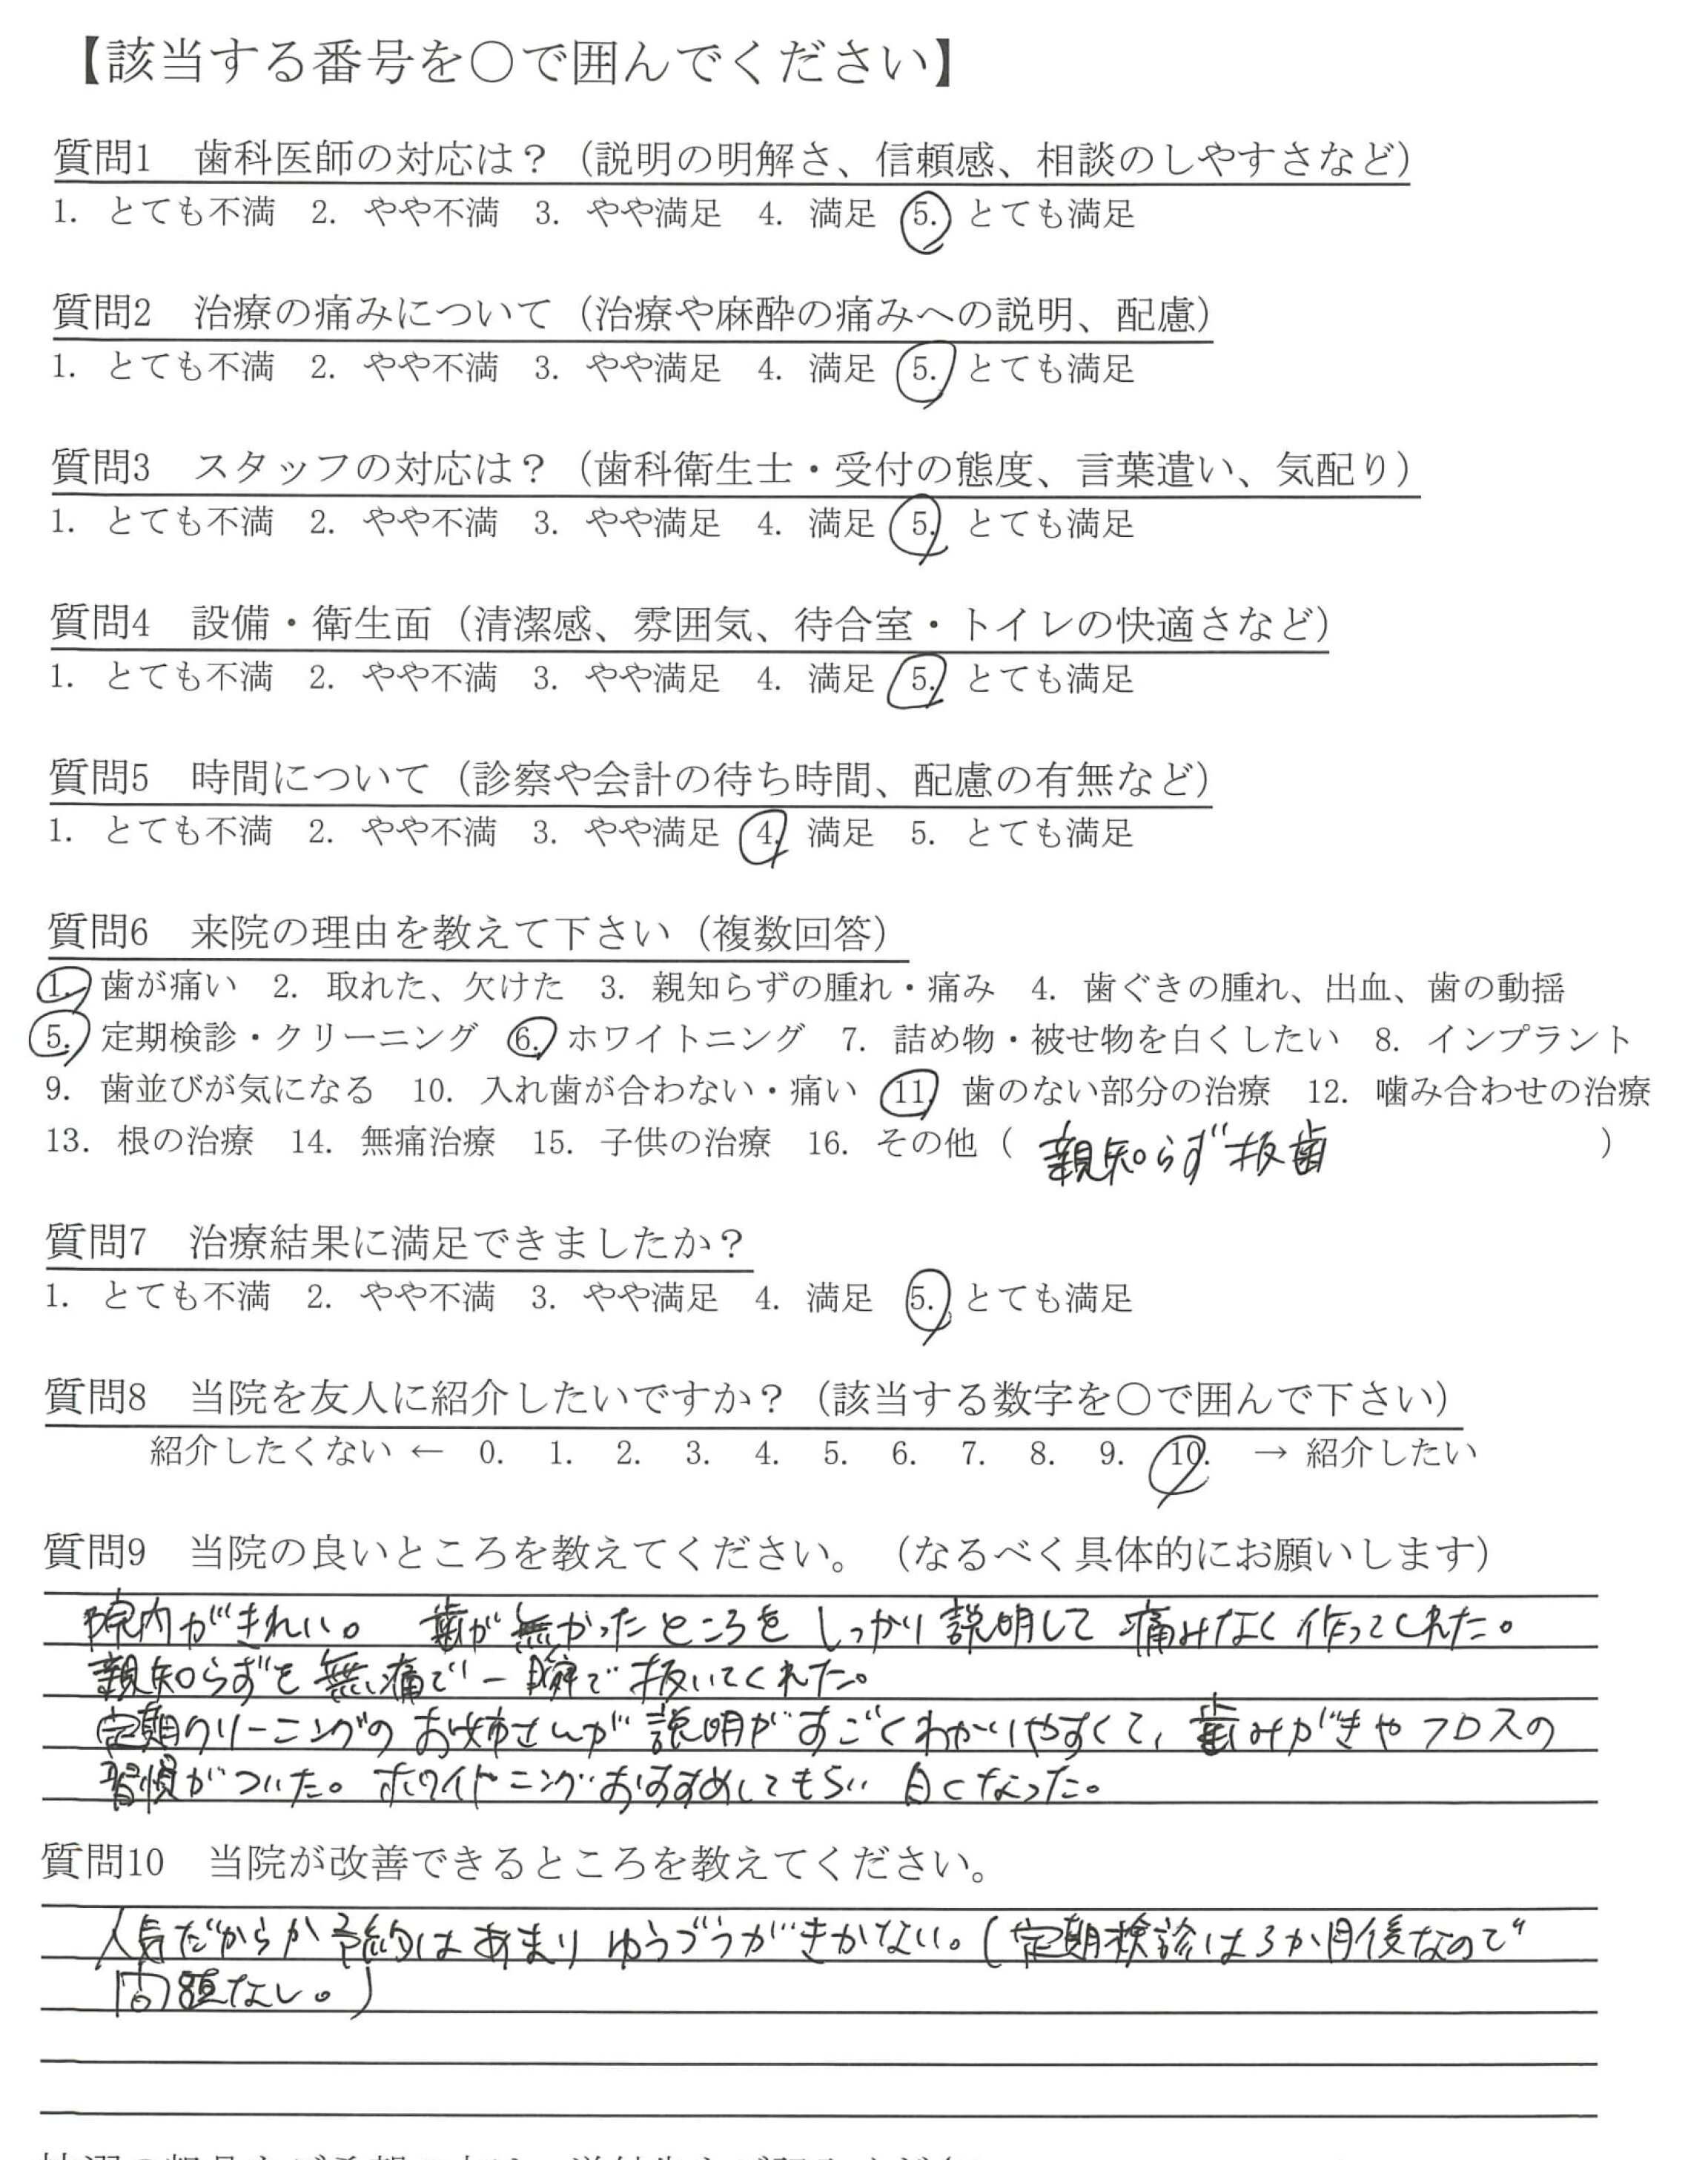 【該当する番号を○で囲んでください】
質問1　歯科医師の対応は？（説明の明解さ、信頼感、相談のしやすさなど）
1. とても不満　2. やや不満　3. やや満足　4. 満足　5. とても満足
質問2　治療の痛みについて（治療や麻酔の痛みへの説明、配慮）
1. とても不満　2. やや不満　3. やや満足　4. 満足　5. とても満足
質問3　スタッフの対応は？（歯科衛生士・受付の態度、言葉遣い、気配り）
1. とても不満　2. やや不満　3. やや満足　4. 満足　5. とても満足
質問4　設備・衛生面（清潔感、雰囲気、待合室・トイレの快適さなど）
1. とても不満　2. やや不満　3. やや満足　4. 満足　5. とても満足
質問5　時間について（診察や会計の待ち時間、配慮の有無など）
1. とても不満　2. やや不満　3. やや満足　4. 満足　5. とても満足
質問6　来院の理由を教えて下さい（複数回答）
1. 歯が痛い　2. 取れた、欠けた　3. 親知らずの腫れ・痛み　4. 歯ぐきの腫れ、出血、歯の動揺
5. 定期検診・クリーニング　6. ホワイトニング　7. 詰め物・被せ物を白くしたい　8. インプラント
9. 歯並びが気になる　10. 入れ歯が合わない・痛い　11. 歯のない部分の治療　12. 噛み合わせの治療
13. 根の治療　14. 無痛治療　15. 子供の治療　16. その他（ 親知らず抜歯 ）
質問7　治療結果に満足できましたか？
1. とても不満　2. やや不満　3. やや満足　4. 満足　5. とても満足
質問8　当院を友人に紹介したいですか？（該当する数字を○で囲んで下さい）
紹介したくない ← 0. 1. 2. 3. 4. 5. 6. 7. 8. 9. 10. → 紹介したい
質問9　当院の良いところを教えてください。（なるべく具体的にお願いします）
院内がきれい。 歯が無かったところをしっかり説明して痛みなく作ってくれた。
親知らずを無痛で一瞬で抜いてくれた。
定期クリーニングのお姉さんが説明がすごくわかりやすくて、歯みがきやフロスの
習慣がついた。ホワイトニングおすすめしてもらい白くなった。
質問10　当院が改善できるところを教えてください。
人気だからか予約はあまりゆうづうがきかない。(定期検診は3か月後なので
問題なし。)